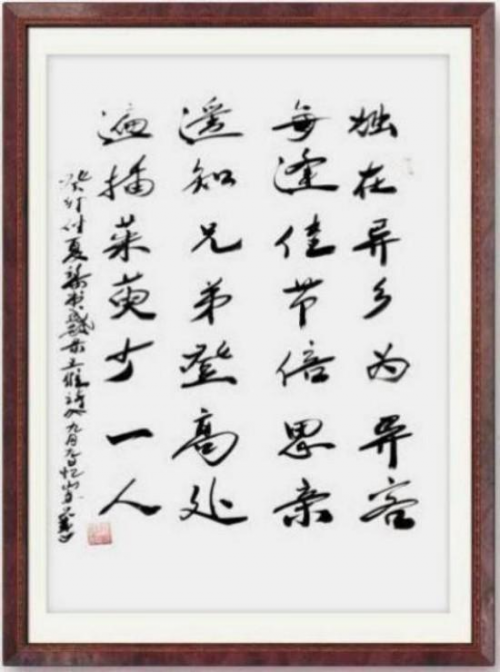 独在异乡为异客
每逢佳节倍思亲
遥知兄弟登高处
遍插茱萸少一人
夏 王维诗 九月九日忆山东兄弟